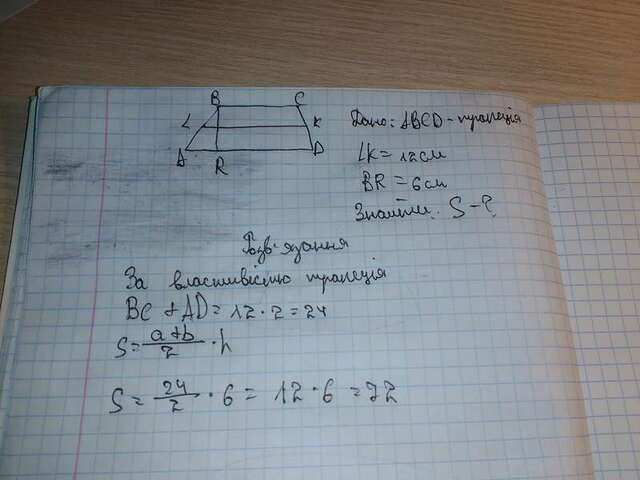 B C
L K
A R D
Дано: ABCD - трапеція
LK = 12 см
BR = 6 см
Знайти: S - ?
Розв'язання
За властивістю трапеція
BC + AD = 12 · 2 = 24
S = a+b/2 · h
S = 24/2 · 6 = 12 · 6 = 72